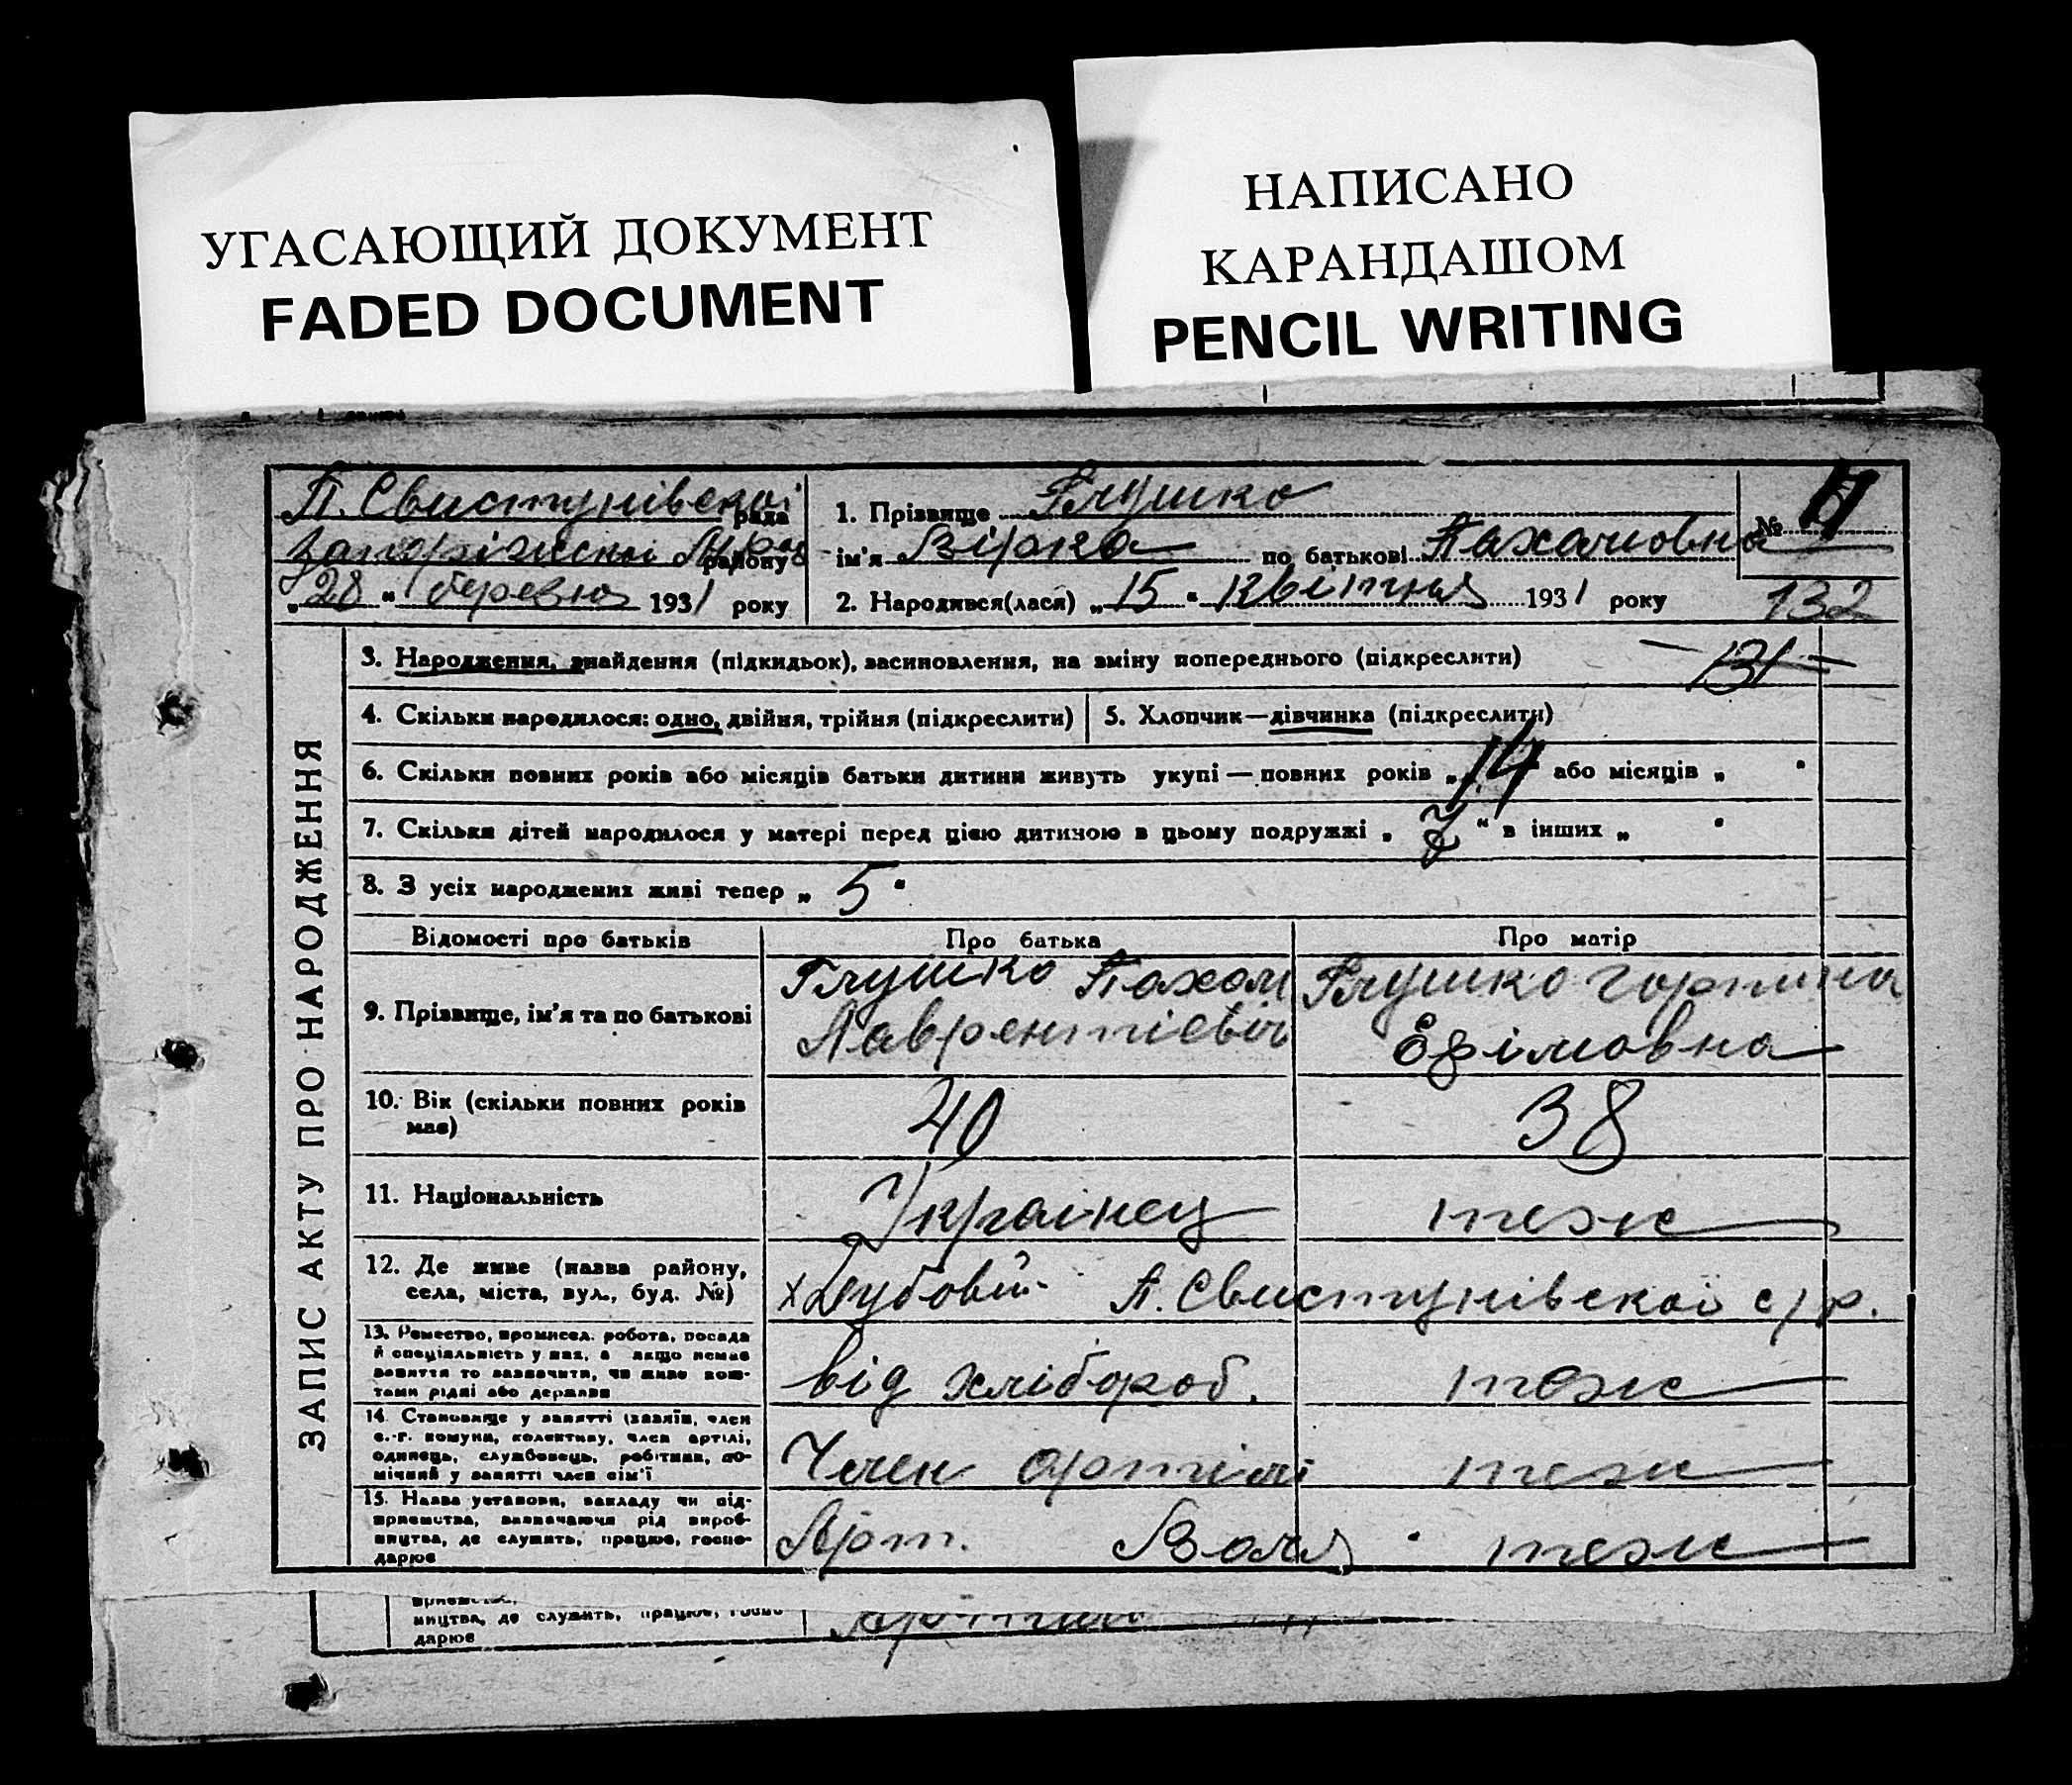 УГАСАЮЩИЙ ДОКУМЕНТ
FADED DOCUMENT
НАПИСАНО
КАРАНДАШОМ
PENCIL WRITING
П. Свистунівской рада
району
„28“ березня 1931 року
1. Прізвище Глушко
ім'я Вірка по батькові Пахомовна
2. Народився(лася) „15“ Квітня 1931 року
№
132
131
ЗАПИС АКТУ ПРО НАРОДЖЕННЯ
3. Народження, знайдення (підкидьок), засиновлення, на зміну попереднього (підкреслити)
4. Скільки народилося: одно, двійня, трійня (підкреслити)
5. Хлопчик—дівчинка (підкреслити)
6. Скільки повних років або місяців батьки дитини живуть укупі — повних років „14 або місяців „ “
7. Скільки дітей народилося у матері перед цією дитиною в цьому подружжі „ 7 “ в інших „ “
8. З усіх народжених живі тепер „ 5 “
Відомості про батьків
Про батька
Про матір
9. Прізвище, ім'я та по батькові
Глушко Пахом
Лаврентієвіч
Глушко Горпина
Ефімовна
10. Вік (скільки повних років
має)
40
38
11. Національність
Украінец
теж
12. Де живе (назва району,
села, міста, вул., буд. №)
х Дубовій П. Свистунівскоі с/р.
13. Ремество, промисел. робота, посада
й спеціяльність у них, а якщо немає
заняття то зазначити, чи живе кош-
тами рідні або держави
від хлібороб.
теж
14. Становище у занятті (хазяїн, член
с.-г. комуни, колективу, член артілі,
одинець, службовець, робітник, по-
мічний у занятті член сім'ї
Член артілі
теж
15. Назва установи, закладу чи під-
приємства, зазначаючи рід вироб-
ництва, де служить, працює, госпо-
дарює
Арт. Воля
теж
ництва, де служить, працює, госпо-
дарює